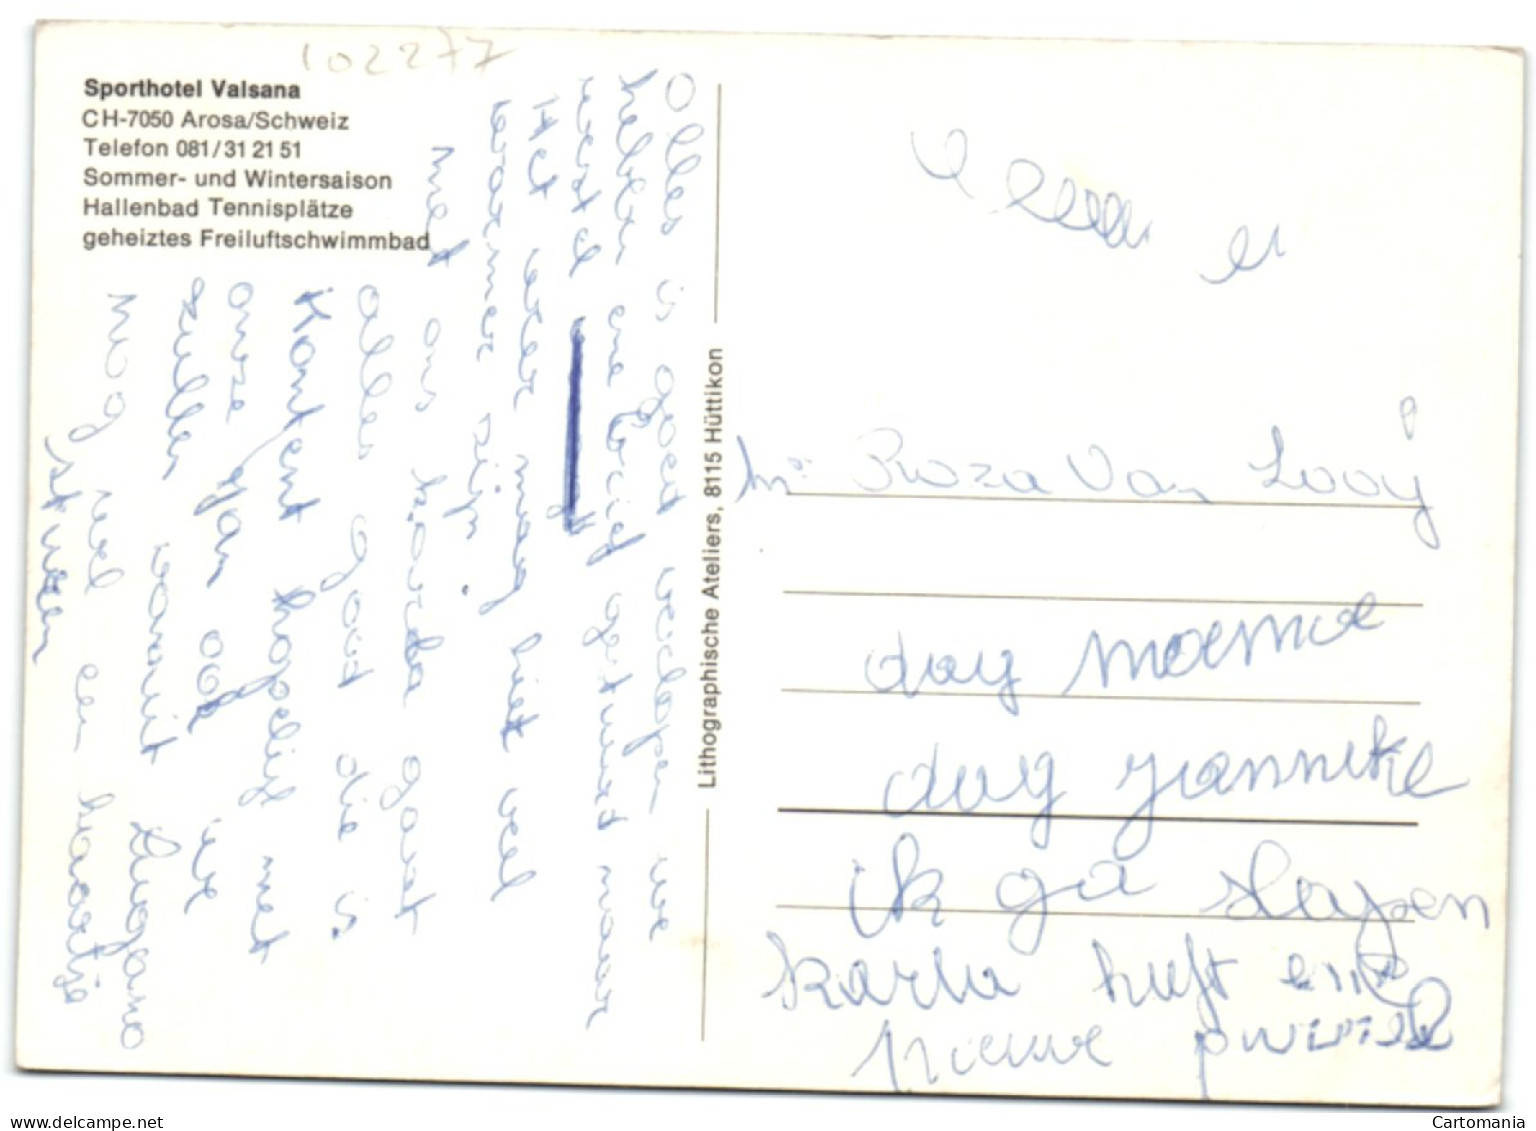 102277
Sporthotel Valsana
CH-7050 Arosa/Schweiz
Telefon 081/31 21 51
Sommer- und Wintersaison
Hallenbad Tennisplätze
geheiztes Freiluftschwimmbad
Alles is goed verlopen we
hebben ene brief gestuurd maar
Het weer mag hiet veel
warmer zijn.
met ons karla gaat
alles goed die is
kontent hopelijk met
onze Jan ook we
zullen vanuit Lugano
nog wel een kaartje
sturen
Lithographische Ateliers, 8115 Hüttikon
Roza Van Looy
dag moema
dag janneke
ik ga slapen
karla heeft ene
nieuwe
delcampe.net
Cartomania